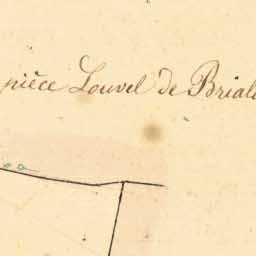 pièce Louvel de Brial